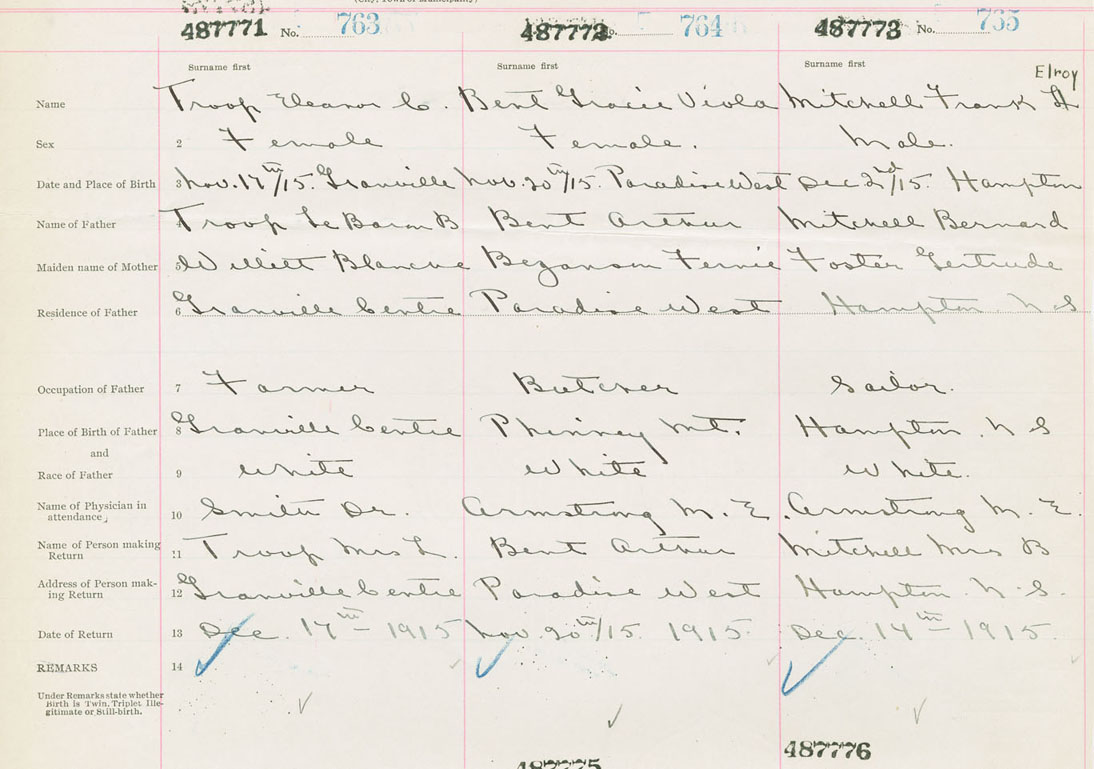 (City, Town or Municipality)
487771 No. 763 487772 No. 764 487773 No. 765
Surname first Surname first Surname first
Elroy
Name Troop Eleanor C. Bent Gracie Viola Mitchell Frank H
Sex 2 Female Female. Male.
Date and Place of Birth 3 Nov. 17th/15. Granville Nov. 20th/15. Paradise West Dec 2nd/15. Hampton
Name of Father 4 Troop Le Baron B Bent Arthur Mitchell Bernard
Maiden name of Mother 5 Willett Blanche Bezanson Fernie Foster Gertrude
Residence of Father 6 Granville Centre Paradise West Hampton N S
Occupation of Father 7 Farmer Butcher Sailor.
Place of Birth of Father 8 Granville Centre Phinney Mt. Hampton. N S
and
Race of Father 9 White White White.
Name of Physician in
attendance 10 Smith Dr. Armstrong M. E. Armstrong M. E.
Name of Person making
Return 11 Troop Mrs L. Bent Arthur Mitchell Mrs B
Address of Person mak-
ing Return 12 Granville Centre Paradise West Hampton. N. S.
Date of Return 13 Dec. 17th – 1915 Nov. 20th/15. 1915. Dec. 14th – 1915.
REMARKS 14
Under Remarks state whether
Birth is Twin, Triplet Ille-
gitimate or Still-birth.
487775 487776